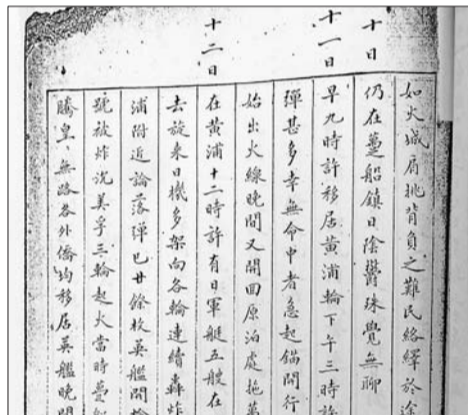 如火城肩挑背負之難民絡繹於途
十日
仍在躉船鎮日陰鬱殊覺無聊
十一日
早九時許移居黃浦輪下午三時許
彈甚多幸無命中者急起錨開行
始出火線晚間又開回原泊處拖躉
十二日
在黃浦十二時許有日軍艇五艘在
去旋來日機多架向各輪連續轟炸
浦附近論落彈已廿餘枚英艦開
號被炸沉美孚三輪起火當時躉船
騰皇〻無路各外僑均移居英艦晚間